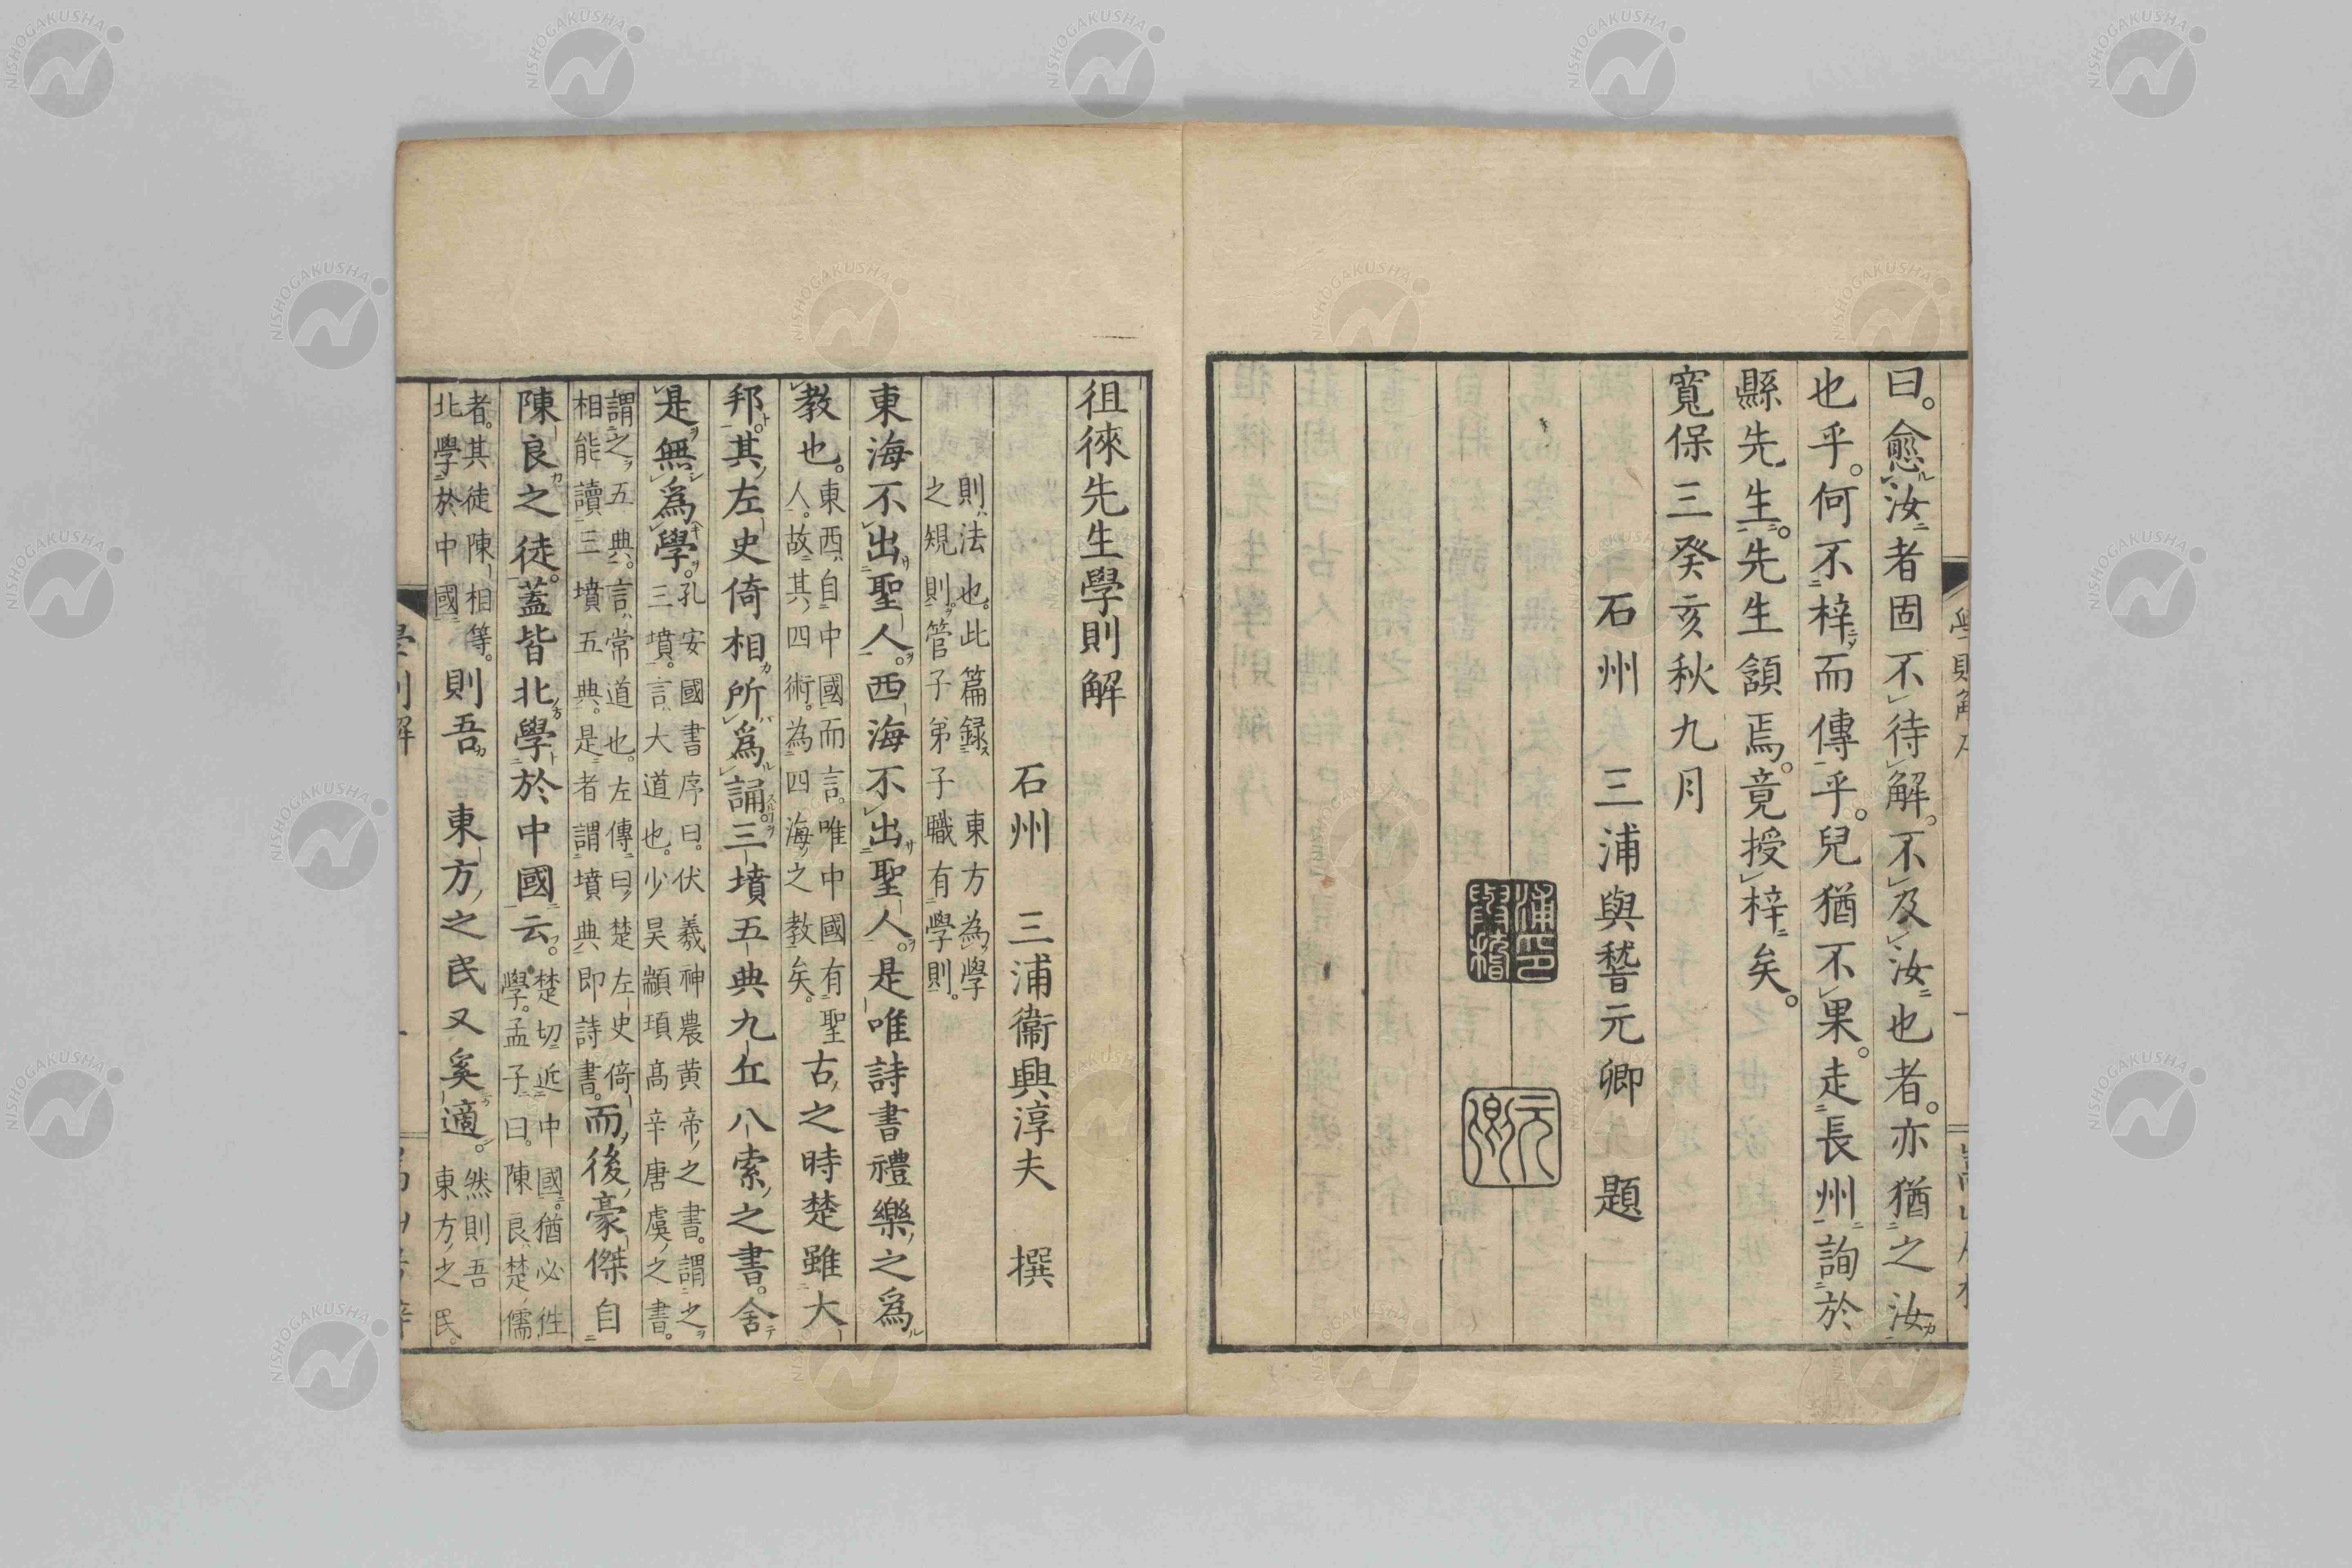 曰。愈汝者固不待解。不及汝也者。亦猶之汝
也乎。何不梓而傳乎。兒猶不果。走長州詢於
縣先生。先生頷焉。竟授梓矣。
寛保三癸亥秋九月
石州 三浦與䭫元卿 題
徂徠先生學則解
石州 三浦衞興淳夫 撰
則法也。此篇録東方為學
之規則。管子弟子職有學則。
東海不出聖人。西海不出聖人。是唯詩書禮樂之爲
教也。東西自中國而言。唯中國有聖
人。故其四術。為四海之教矣。古之時楚雖大
邦。其左史倚相所爲誦三墳五典九丘八索之書。舍
是無爲學。孔安國書序曰。伏羲神農黄帝之書。謂之
三墳。言大道也。少昊顓頊髙辛唐虞之書。
謂之五典。言常道也。左傳曰楚左史倚
相能讀三墳五典。是者謂墳典即詩書。而後豪傑自
陳良之徒。蓋皆北學於中國云。楚切近中國。猶必徃
學。孟子曰。陳良楚儒
者。其徒陳相等。
北學於中國。則吾 東方之民又奚適。然則吾
東方之民。
NISHOGAKUSHA